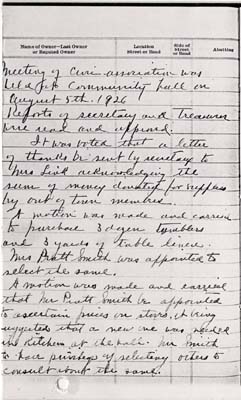 Name of Owner—Last Owner
or Reputed Owner
Location
Street or Road
Side of
Street
or Road
Abutting
Meeting of Civic association was
held at Community hall on
August 5th. 1926
Reports of secretary and Treasurer
were read and approved.
It was voted that a letter
of thanks be sent by secretary to
Mrs Lisk acknowledging the
sum of money donated for supplies
by out of town members.
A motion was made and carried
to purchase 3 dozen tumblers
and 3 yards of table linen.
Mrs Pratt Smith was appointed to
select the same.
A motion was made and carried
that Mr Pratt Smith be appointed
to ascertain prices on stove, it being
suggested that a new one was needed
in kitchen at the hall. Mr Smith
to have privilege of selecting others to
consult about the same.